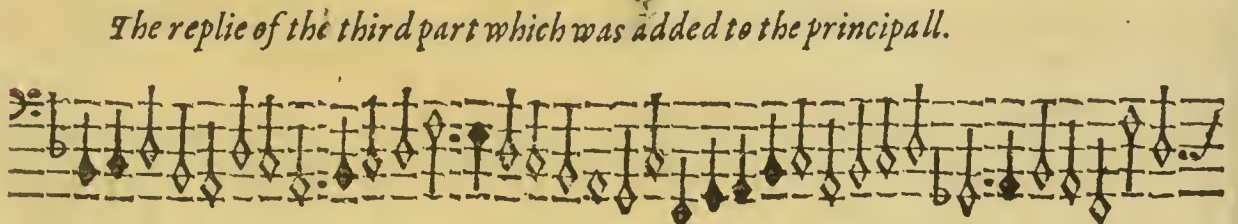 The replie of the third part which was added to the principall.